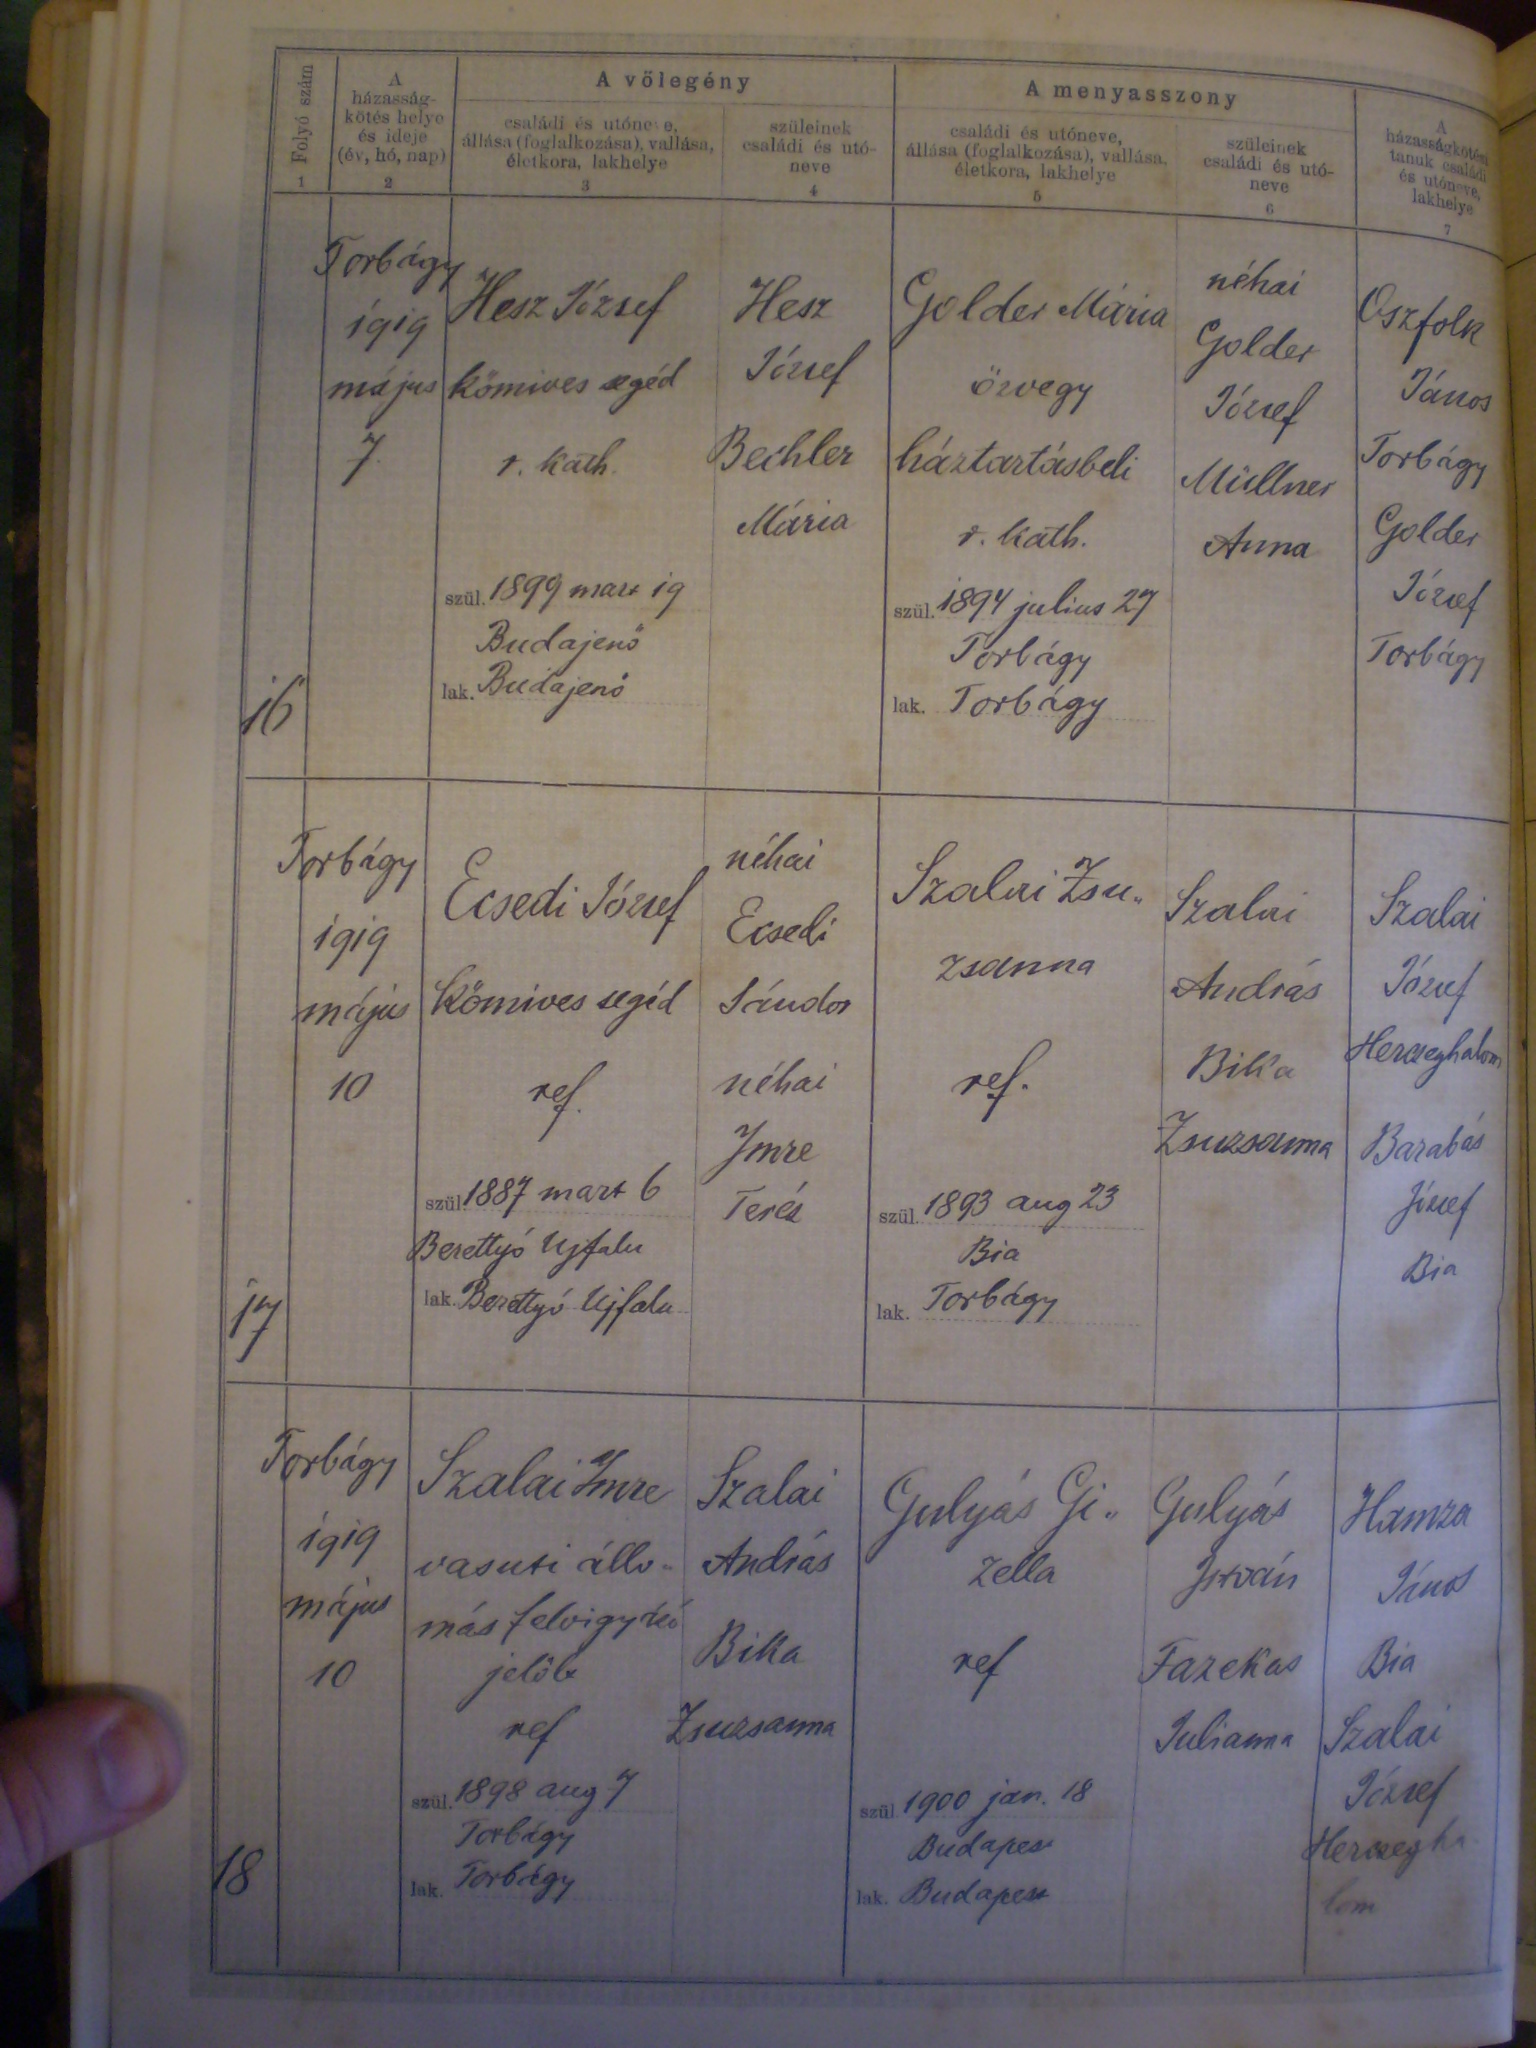 Folyó szám
1
A
házasság-
kötés helye
és ideje
(év, hó, nap)
2
A vőlegény
családi és utóneve,
állása (foglalkozása), vallása,
életkora, lakhelye
3
szüleinek
családi és utó-
neve
4
A menyasszony
családi és utóneve,
állása (foglalkozása), vallása,
életkora, lakhelye
5
szüleinek
családi és utó-
neve
6
A
házasságkötési
tanuk családi
és utóneve,
lakhelye
7
16
Torbágy
1919
május
7.
Hesz József
kőmives segéd
r. kath.
szül. 1899 mart 19
Budajenő
lak. Budajenő
Hesz
József
Bechler
Mária
Golder Mária
özvegy
háztartásbeli
r. kath.
szül. 1894 julius 27
Torbágy
lak. Torbágy
néhai
Golder
József
Müllner
Anna
Oszfolk
János
Torbágy
Golder
József
Torbágy
17
Torbágy
1919
május
10
Ecsedi József
Kőmives segéd
ref.
szül. 1887 mart 6
Berettyó Ujfalu
lak. Berettyó Ujfalu
néhai
Ecsedi
Sándor
néhai
Imre
Teréz
Szalai Zsu„
zsanna
ref.
szül. 1893 aug 23
Bia
lak. Torbágy
Szalai
András
Bika
Zsuzsanna
Szalai
József
Herczeghalom
Barabás
József
Bia
18
Torbágy
1919
május
10
Szalai Imre
vasuti állo„
más felvigyázó
jelölt
ref
szül. 1898 aug 7
Torbágy
lak. Torbágy
Szalai
András
Bika
Zsuzsanna
Gulyás Gi„
zella
ref
szül. 1900 jan. 18
Budapest
lak. Budapest
Gulyás
István
Fazekas
Julianna
Hamza
János
Bia
Szalai
József
Herczegha
lom